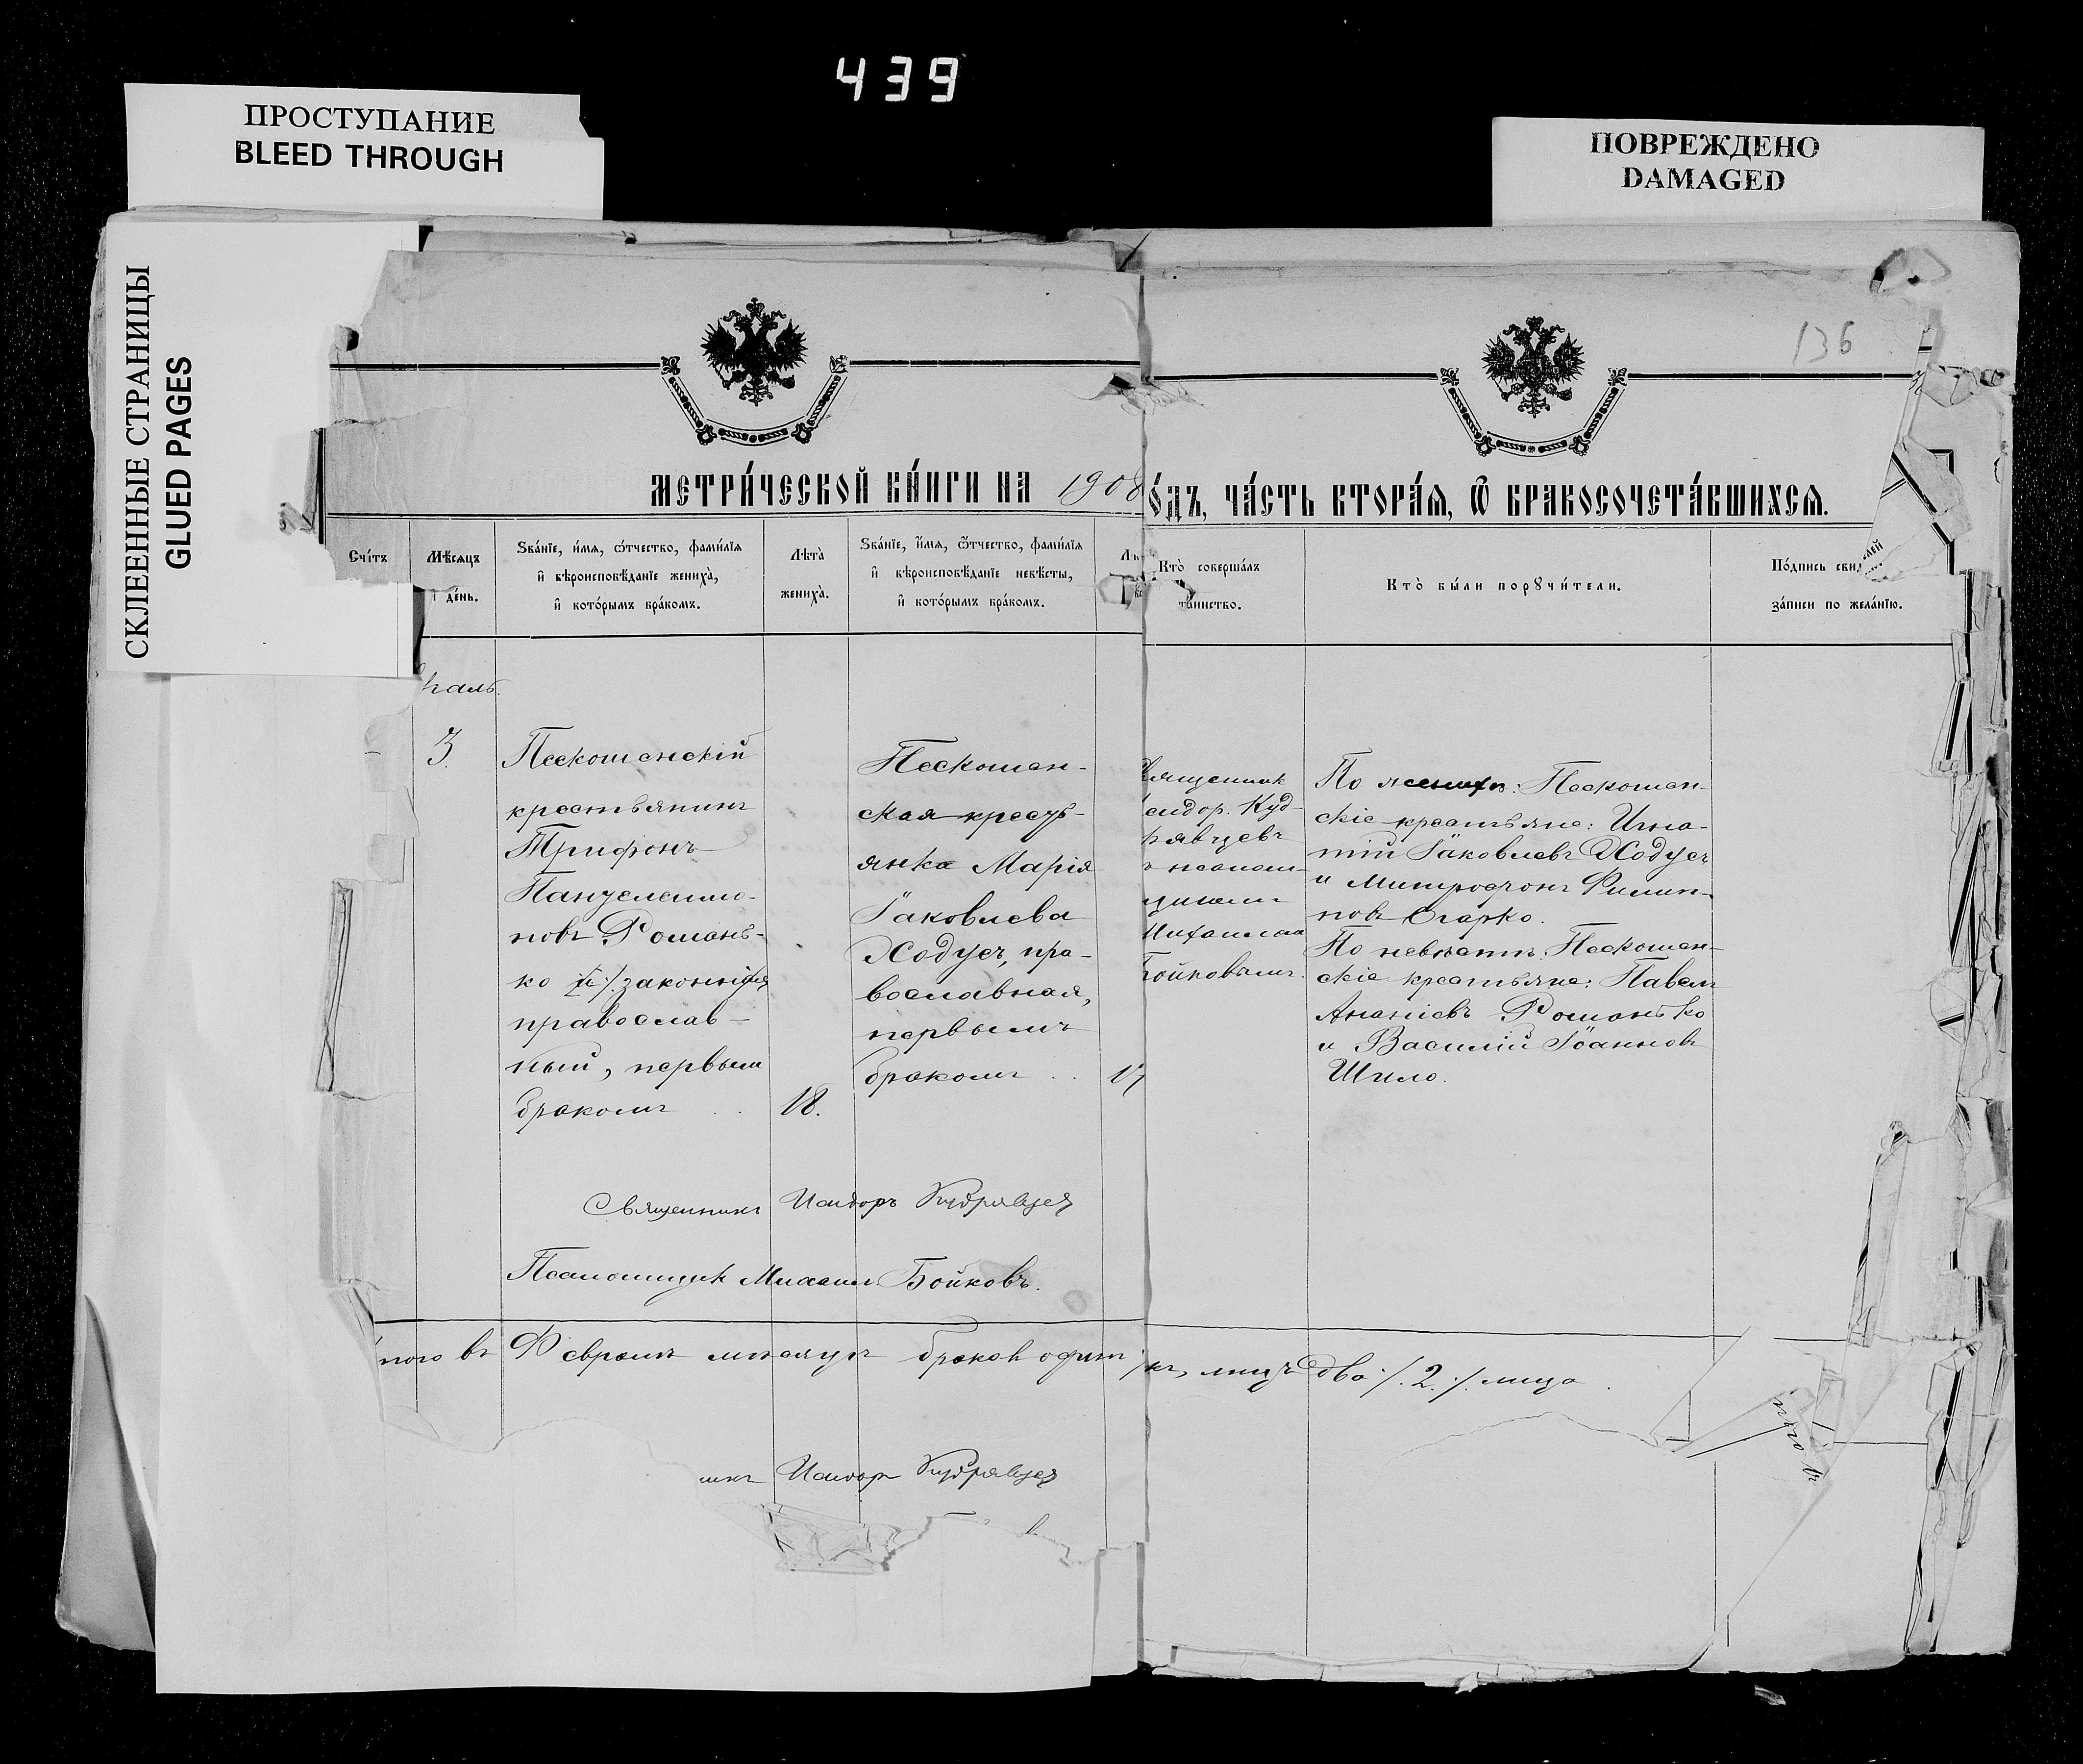 439
ПРОСТУПАНИЕ
BLEED THROUGH
ПОВРЕЖДЕНО
DAMAGED
СКЛЕЕННЫЕ СТРАНИЦЫ
GLUED PAGES
136
МЕТРИ́ЧЕСКОЙ КНИ́ГИ НА 1908
О́ДЪ, ЧА́СТЬ ВТОРА́Я, Ѿ БРАКОСОЧЕТА́ВШИХСЯ.
Сче́тъ
Мѣ́сяцъ
і де́нь.
Зва́нїе, и́мя, ѻ́тчество, фами́лїя
и҆ вѣроисповѣ́данїе жениха̀,
и҆ кото́рымъ бра́комъ.
Лѣта̀
жениха̀.
Зва́нїе, и҆́мя, ѻ҆́тчество, фами́лїя
и҆ вѣроисповѣ́данїе невѣ́сты,
и҆ кото́рымъ бра́комъ.
Кто̀ соверша́лъ
та́инство.
Кто̀ бы́ли порꙋчи́тели.
По́дпись свид
за́писи по жела́нїю.
раль.
3.
Пескошенскій
крестьянинъ
Трифонъ
Пантелеимо-
новъ Романь-
ко
православ-
ный, первымъ
бракомъ
18.
Пескошен-
ская кресть-
янка Марія
Іаковлева
Ходусъ, пра-
вославная,
первымъ
бракомъ
17
вященник
сидор. Куд-
рявцевъ
ъ псалом-
щикомъ
Михаиломъ
Бойковымъ.
По женихѣ: Пескошен-
скіе крестьяне: Игна-
тій Іаковлевъ Ходусъ
и Митрофанъ Филип-
повъ Огарко.
По невѣстѣ: Пескошен-
скіе крестьяне: Павелъ
Ананіевъ Романько
и Василій Іоанновъ
Шило.
Священникъ Исидоръ Кудрявцев
Псаломщик Михаилъ Бойковъ.
того въ Февралѣ мѣсяцѣ браков один къ, лицъ два /. 2 ./. лица.
икъ Исидоръ Кудрявцев
того въ